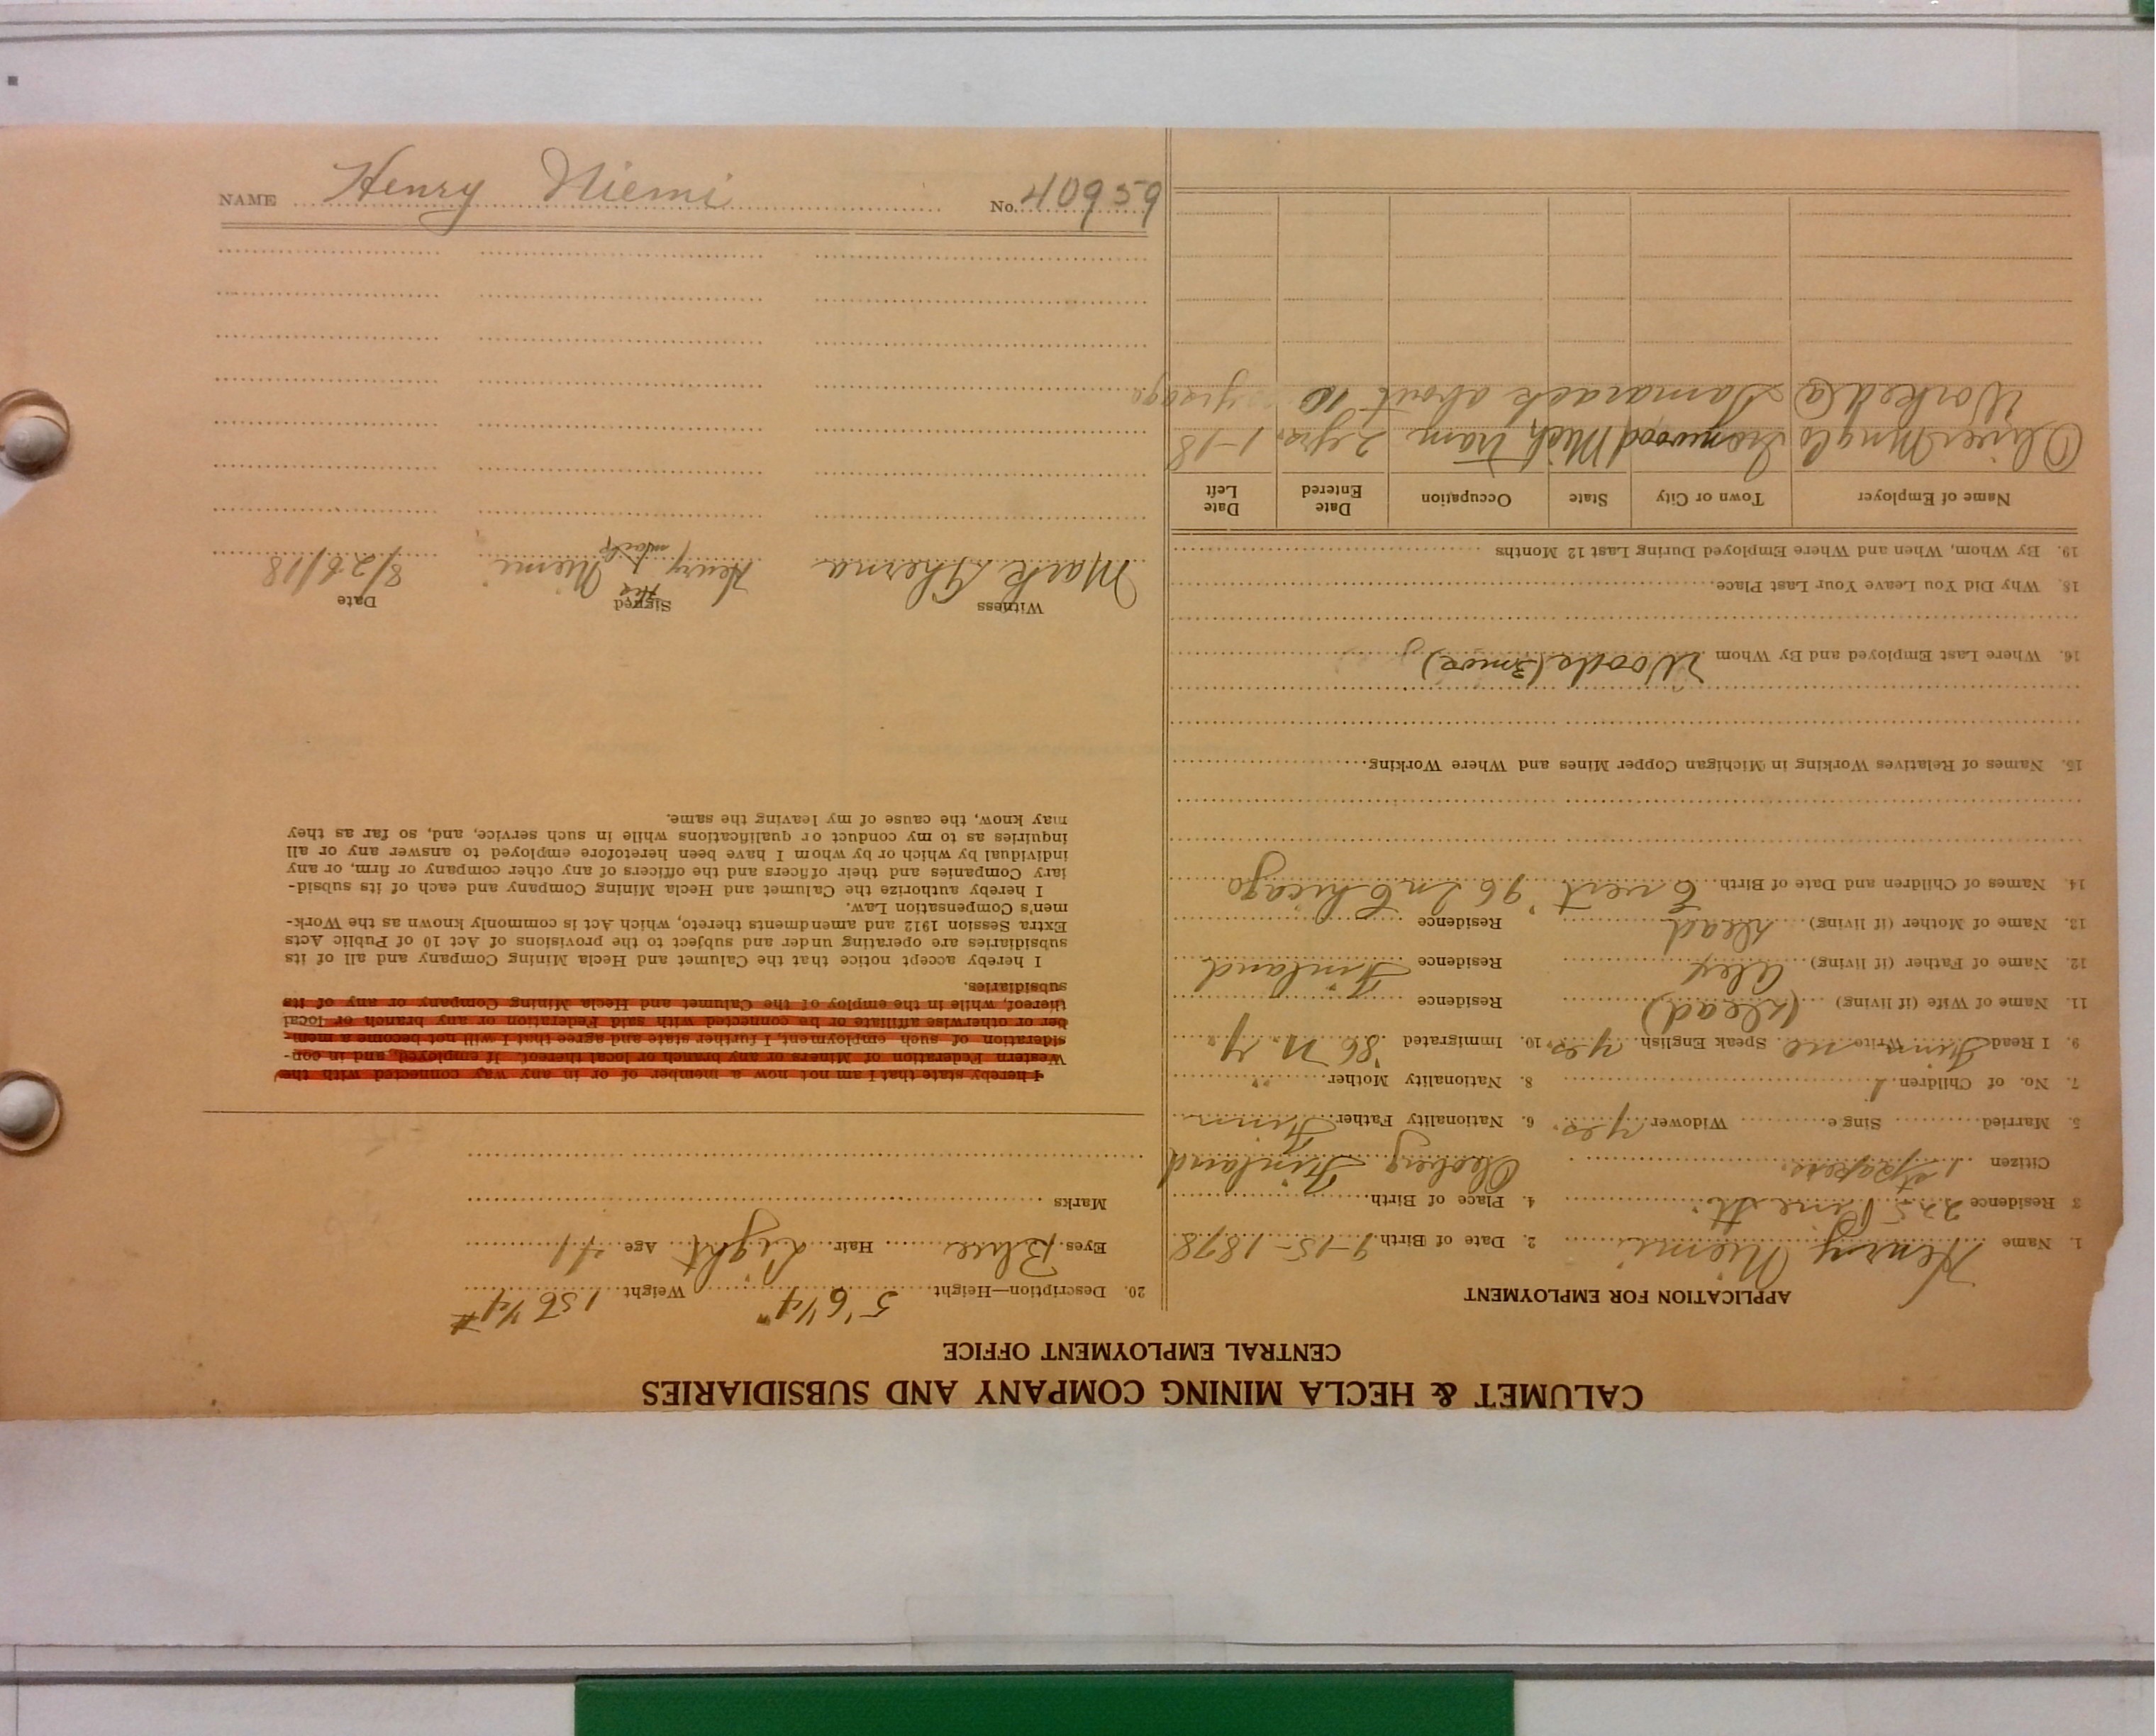 NAME Henry Niemi No. 40959
CALUMET & HECLA MINING COMPANY AND SUBSIDIARIES
CENTRAL EMPLOYMENT OFFICE
APPLICATION FOR EMPLOYMENT
1. Name Henry Niemi 2. Date of Birth 9-15-1878
3 Residence 225 Pine St. 4. Place of Birth
Citizen 1st papers. Uleoberg Finland
5. Married Single Widower yes. 6. Nationality Father Finn
7. No. of Children 1 8. Nationality Mother "
9. I Read Finn Write no Speak English yes. 10. Immigrated '86 N. Y.
11. Name of Wife (if living) (Dead) Residence
12. Name of Father (if living) Alex Residence Finland
13. Name of Mother (if living) Dead Residence
14. Names of Children and Date of Birth '96 In Chicago
15. Names of Relatives Working in Michigan Copper Mines and Where Working
16. Where Last Employed and By Whom Woods (3mos)
18. Why Did You Leave Your Last Place
19. By Whom, When and Where Employed During Last 12 Months
Name of Employer Town or City State Occupation Date Entered Date Left
Oliver Mng Co Ironwood Mich Tram 2 yrs. 1-18
Worked @ Tamarack about 10 yrs ago
20. Description—Height 5'6¼" Weight 156¼#
Eyes Blue Hair Light Age 41
Marks
I hereby state that I am not now a member of or in any way connected with the
Western Federation of Miners or any branch or local thereof. If employed, and in con-
sideration of such employment, I further state and agree that I will not become a mem-
ber or otherwise affiliate or be connected with said Federation or any branch or local
thereof, while in the employ of the Calumet and Hecla Mining Company or any of its
subsidiaries.
I hereby accept notice that the Calumet and Hecla Mining Company and all of its
subsidiaries are operating under and subject to the provisions of Act 10 of Public Acts
Extra Session 1912 and amendments thereto, which Act is commonly known as the Work-
men's Compensation Law.
I hereby authorize the Calumet and Hecla Mining Company and each of its subsid-
iary Companies and their officers and the officers of any other company or firm, or any
individual by which or by whom I have been heretofore employed to answer any or all
inquiries as to my conduct or qualifications while in such service, and, so far as they
may know, the cause of my leaving the same.
Witness Signed Date
his
Mark Henry x Niemi 8/26/18
mark